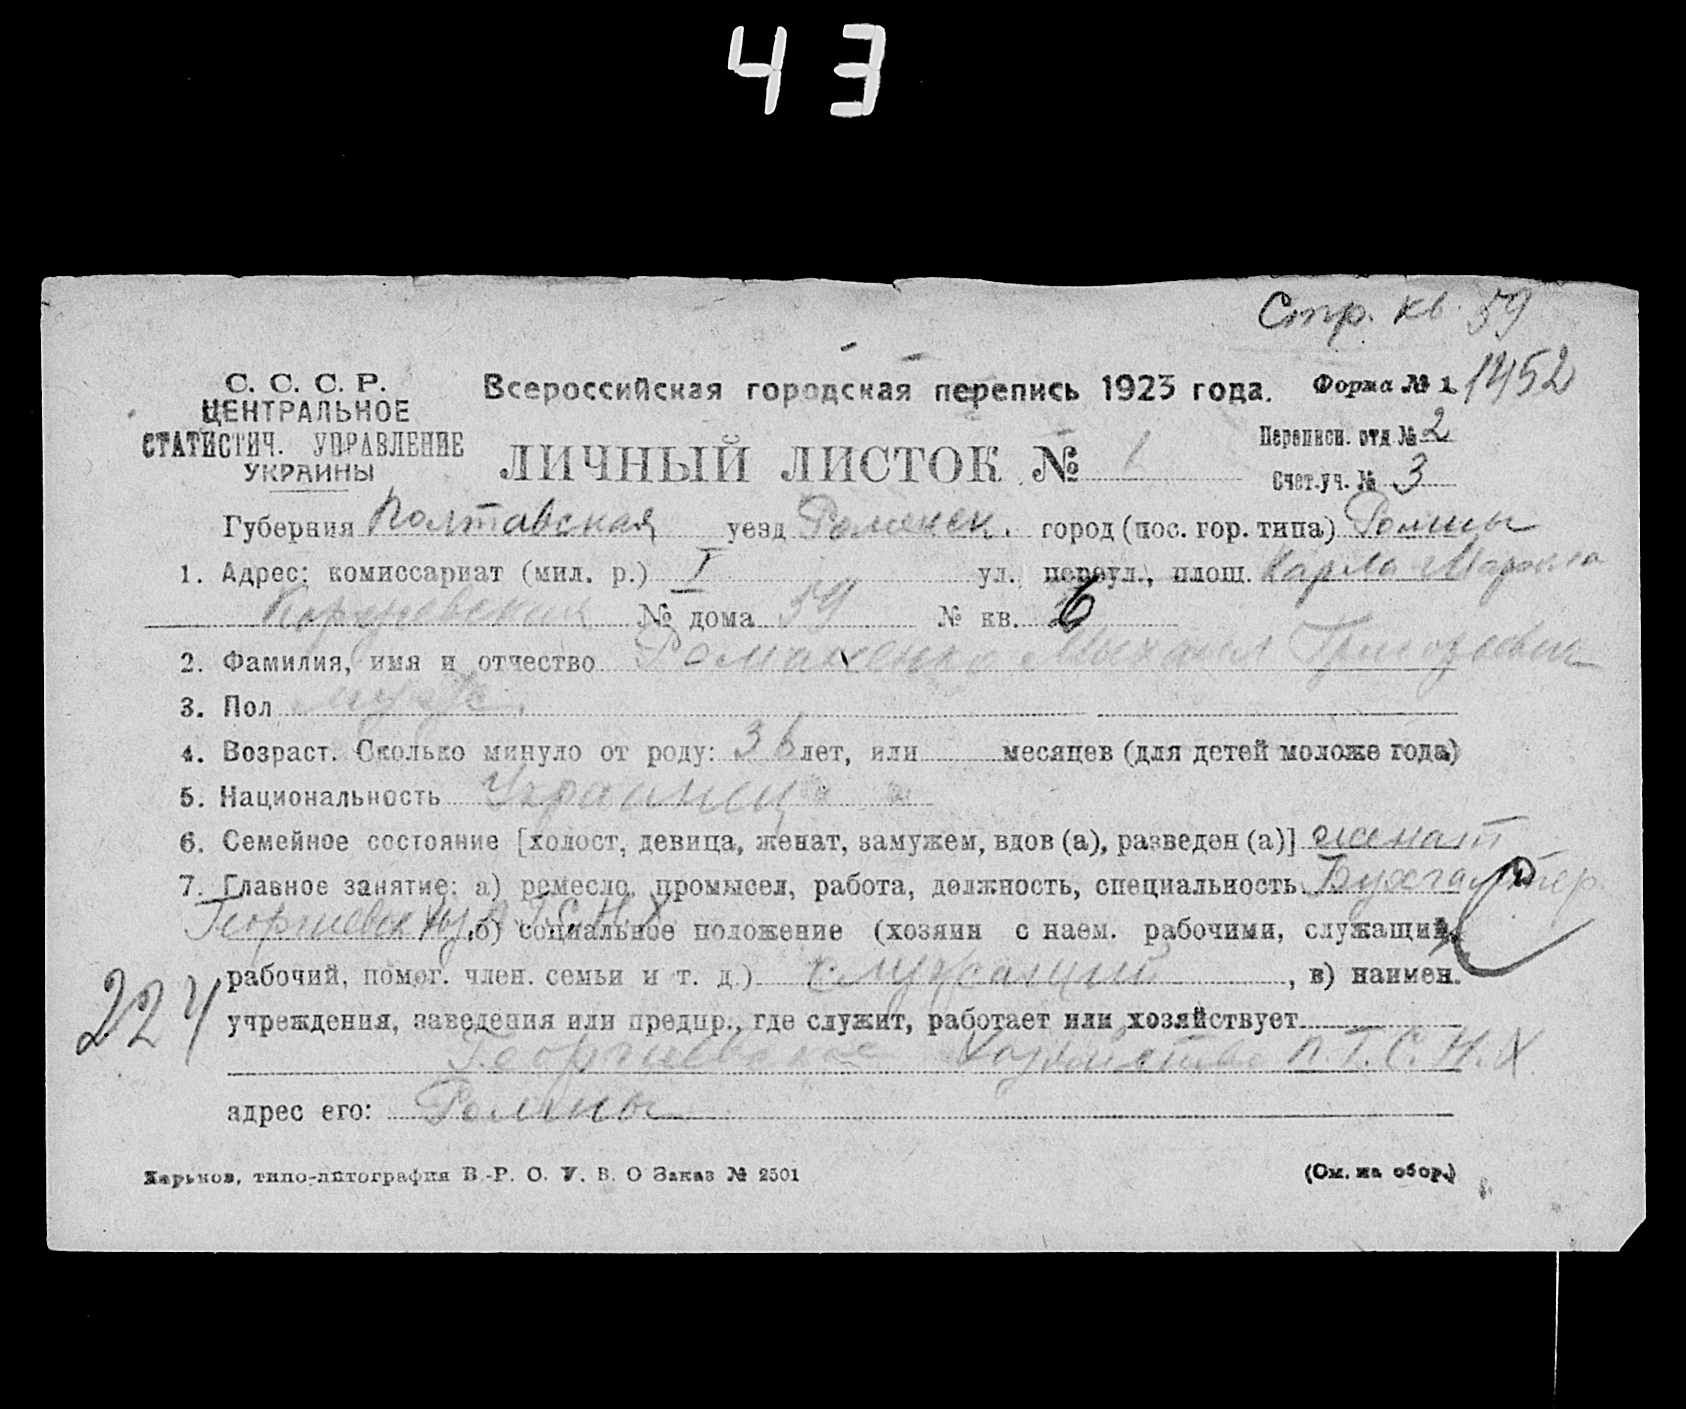 43
Стр. кв. 59
С. С. С. Р.
ЦЕНТРАЛЬНОЕ
СТАТИСТИЧ. УПРАВЛЕНИЕ
УКРАИНЫ
Всероссийская городская перепись 1923 года.
Форма № 1. 1452
ЛИЧНЫЙ ЛИСТОК № 1
Переписн. отд № 2
Счет.уч. № 3
Губерния Полтавская уезд Роменск. город (пос. гор. типа) Ромны
1. Адрес: комиссариат (мил. р.) I ул., переул., площ. Карла Маркса
№ дома 59 № кв. 6
2. Фамилия, имя и отчество Романенко Михаил Григорьевич
3. Пол муж.
4. Возраст. Сколько минуло от роду: 36 лет, или месяцев (для детей моложе года)
5. Национальность Украинец
6. Семейное состояние [холост, девица, женат, замужем, вдов (а), разведен (а)] женат
7. Главное занятие: а) ремесло, промысел, работа, должность, специальность Бухгалтер
Георгиевск б) социальное положение (хозяин с наем. рабочими, служащий,
рабочий, помог. член. семьи и т. д.) служащий, в) наимен.
224
учреждения, заведения или предпр., где служит, работает или хозяйствует
Георгиевское Хозяйство П.Г.С.Н.Х.
адрес его: Ромны
Харьков, типо-литография В.-Р. О. У. В. О Заказ № 2501
(См. на обор.)